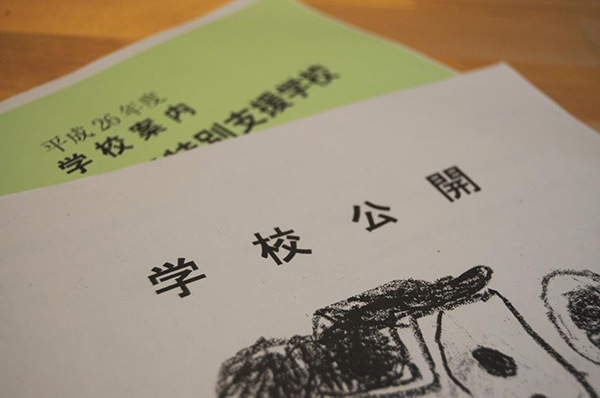 平成26年度
学校案内
特別支援学校
学校公開